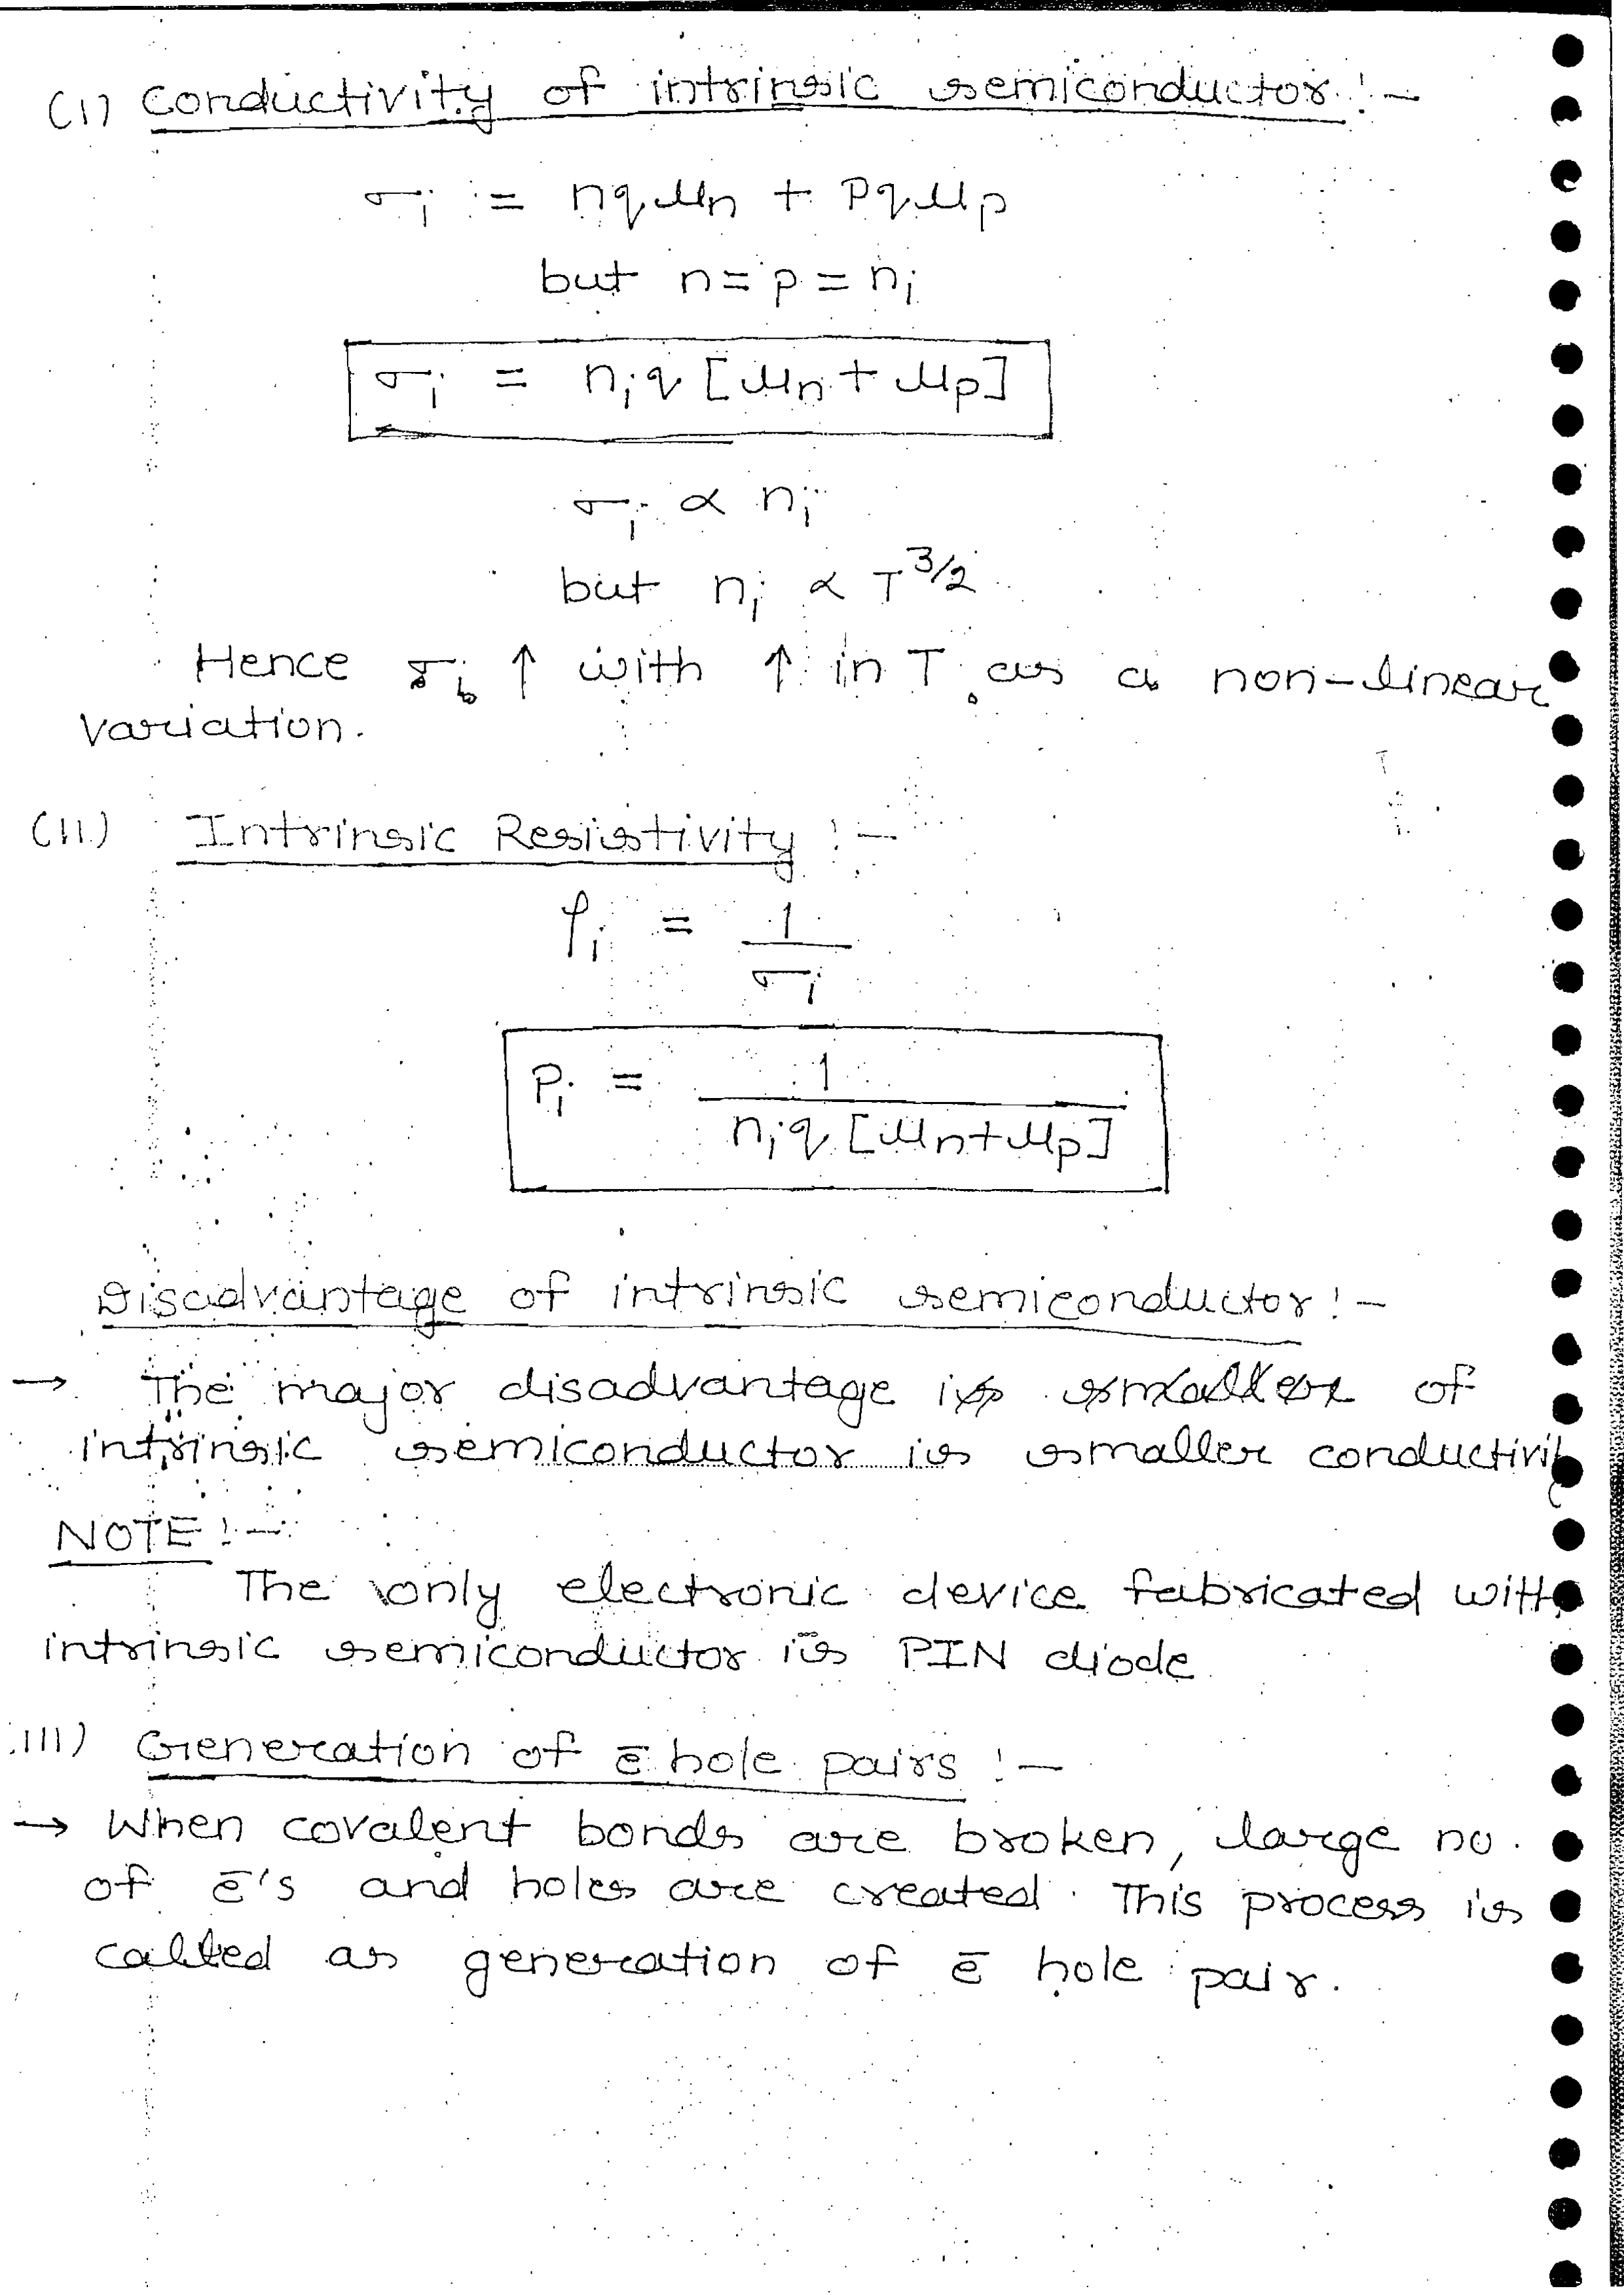 (I) Conductivity of intrinsic semiconductor :-
σi = nqμn + pqμp
but n = p = ni
σi = niq [μn + μp]
σi ∝ ni
but ni ∝ T^3/2
Hence σi ↑ with ↑ in T as a non-linear
variation.
(II) Intrinsic Resistivity :-
ρi = 1/σi
ρi = 1/niq [μn+μp]
Disadvantage of intrinsic semiconductor :-
→ The major disadvantage of
intrinsic semiconductor is smaller conductivi
NOTE :-
The only electronic device fabricated with
intrinsic semiconductor is PIN diode
III) Generation of ē hole pairs :-
→ When covalent bonds are broken, large no.
of ē's and holes are created. This process is
called as generation of ē hole pair.